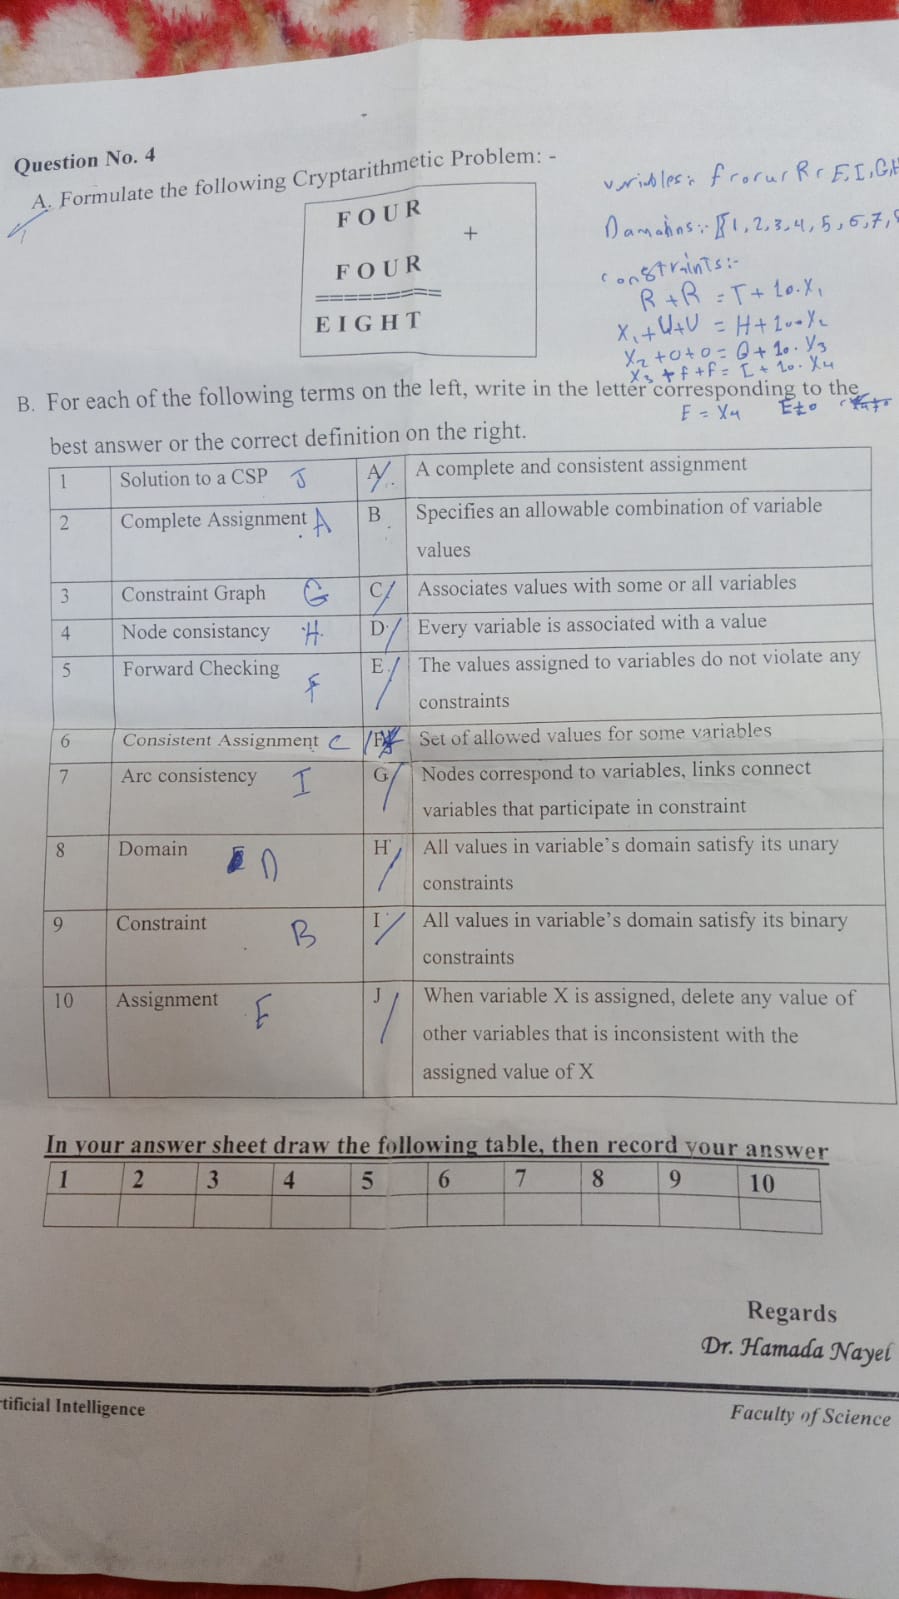 Question No. 4
A. Formulate the following Cryptarithmetic Problem: -
F O U R
+
F O U R
=========
E I G H T
Domains:- {1,2,3,4,5,6,7,
constraints:-
R + R = T + 10.X1
X1 + U + U = H +
X2 + O + O = G + 10. X3
X3 + f + f = I + 10. X4
E = X4 E≠0
B. For each of the following terms on the left, write in the letter corresponding to the
best answer or the correct definition on the right.
1 Solution to a CSP J A A complete and consistent assignment
2 Complete Assignment A B Specifies an allowable combination of variable
values
3 Constraint Graph G C Associates values with some or all variables
4 Node consistancy H D Every variable is associated with a value
5 Forward Checking F E The values assigned to variables do not violate any
constraints
6 Consistent Assignment C F Set of allowed values for some variables
7 Arc consistency I G Nodes correspond to variables, links connect
variables that participate in constraint
8 Domain D H All values in variable's domain satisfy its unary
constraints
9 Constraint B I All values in variable's domain satisfy its binary
constraints
10 Assignment E J When variable X is assigned, delete any value of
other variables that is inconsistent with the
assigned value of X
In your answer sheet draw the following table, then record your answer
1 2 3 4 5 6 7 8 9 10
Regards
Dr. Hamada Nayel
tificial Intelligence
Faculty of Science